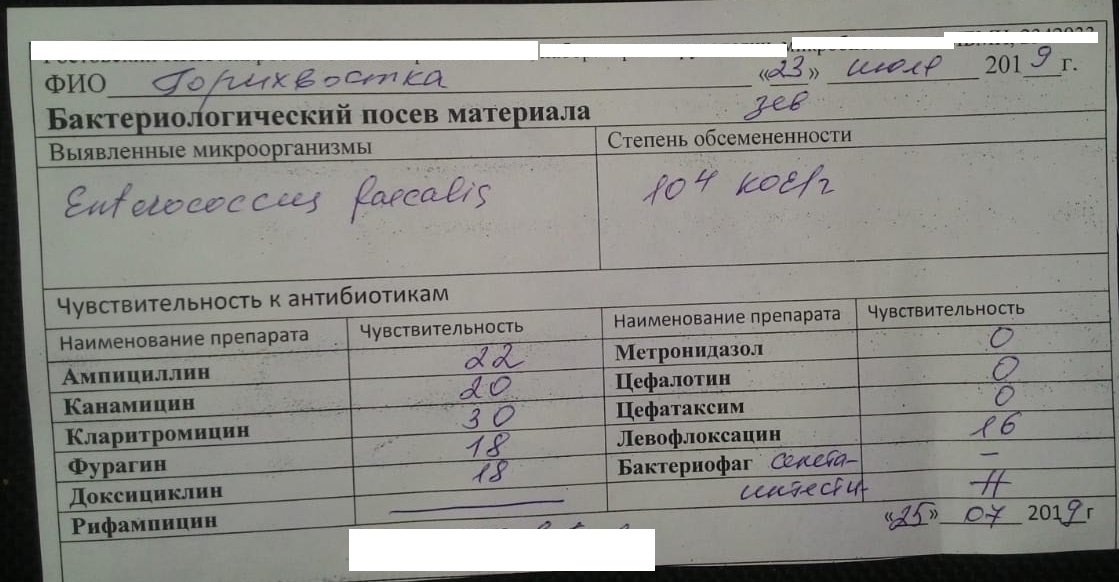 ФИО Горихвостка «23» июля 2019г.
Бактериологический посев материала зев
Выявленные микроорганизмы Степень обсемененности
Enterococcus faecalis 10⁴ КОЕ/г
Чувствительность к антибиотикам
Наименование препарата Чувствительность Наименование препарата Чувствительность
Ампициллин 22 Метронидазол 0
Канамицин 20 Цефалотин 0
Кларитромицин 30 Цефатаксим 0
Фурагин 18 Левофлоксацин 16
Доксициклин 18 Бактериофаг секста- –
Рифампицин — интести-
«25» 07 2019г